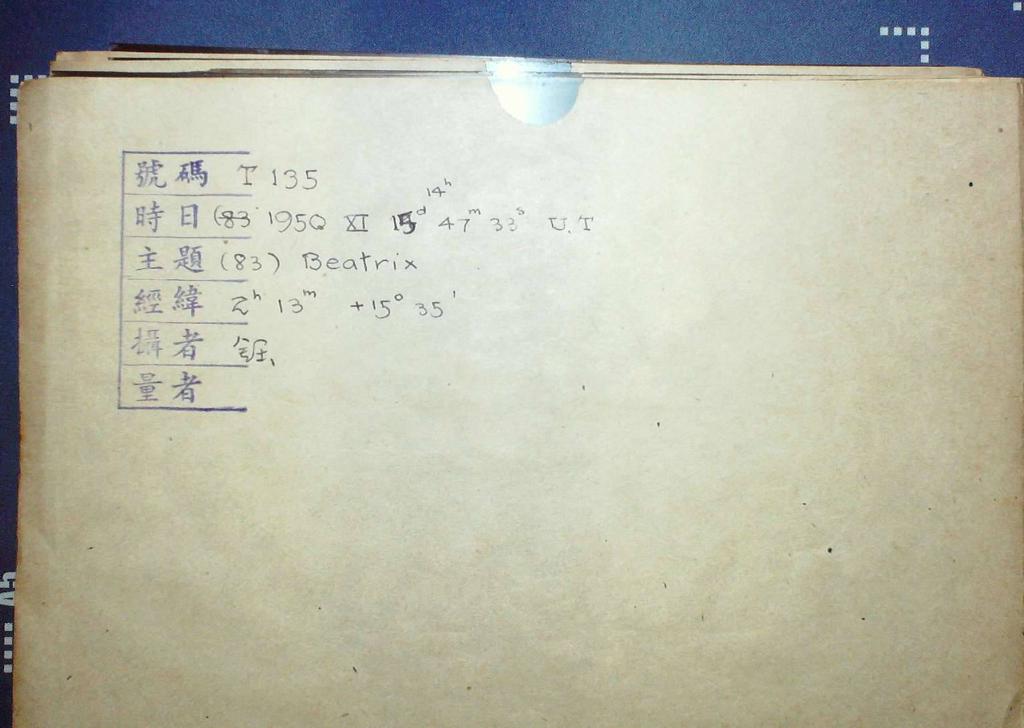 號碼 T 135
時日 (83 1950 XI 15ᵈ 14ʰ 47ᵐ 33ˢ U.T
主題 (83) Beatrix
經緯 2ʰ 13ᵐ +15° 35'
攝者
量者